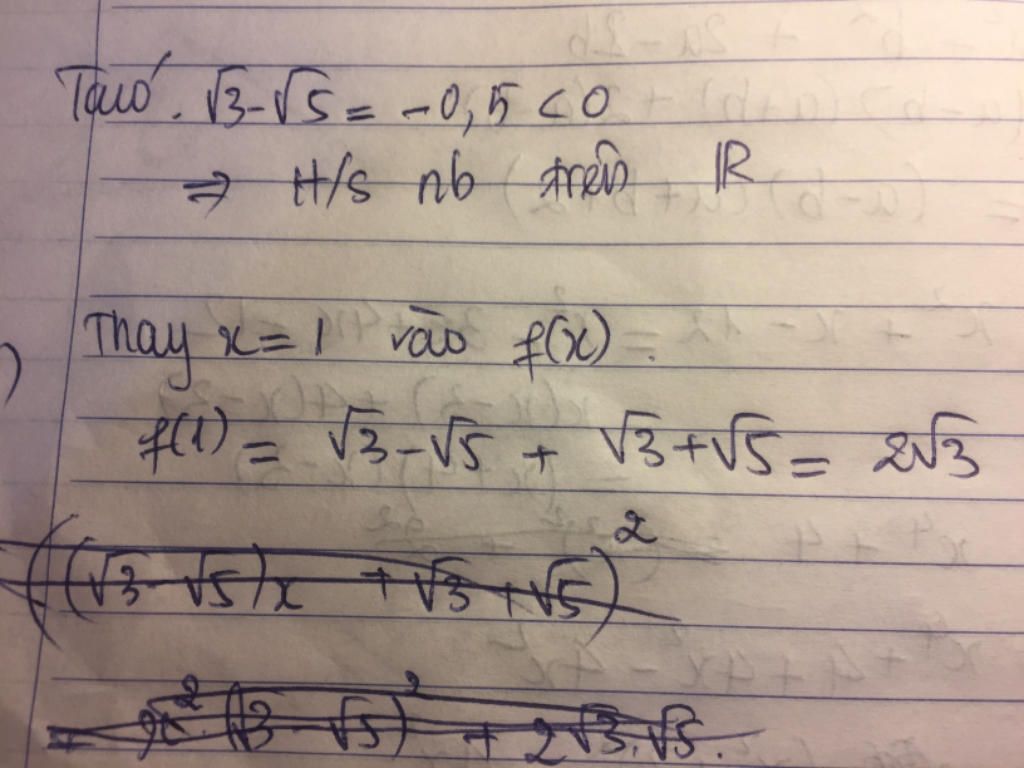 Ta có. √3-√5 = -0,5 < 0
⇒ H/s nb trên ℝ
)
Thay x = 1 vào f(x).
f(1) = √3-√5 + √3+√5 = 2√3
((√3-√5)x + √3+√5)²
= x². (√3-√5)² + 2√3.√5.